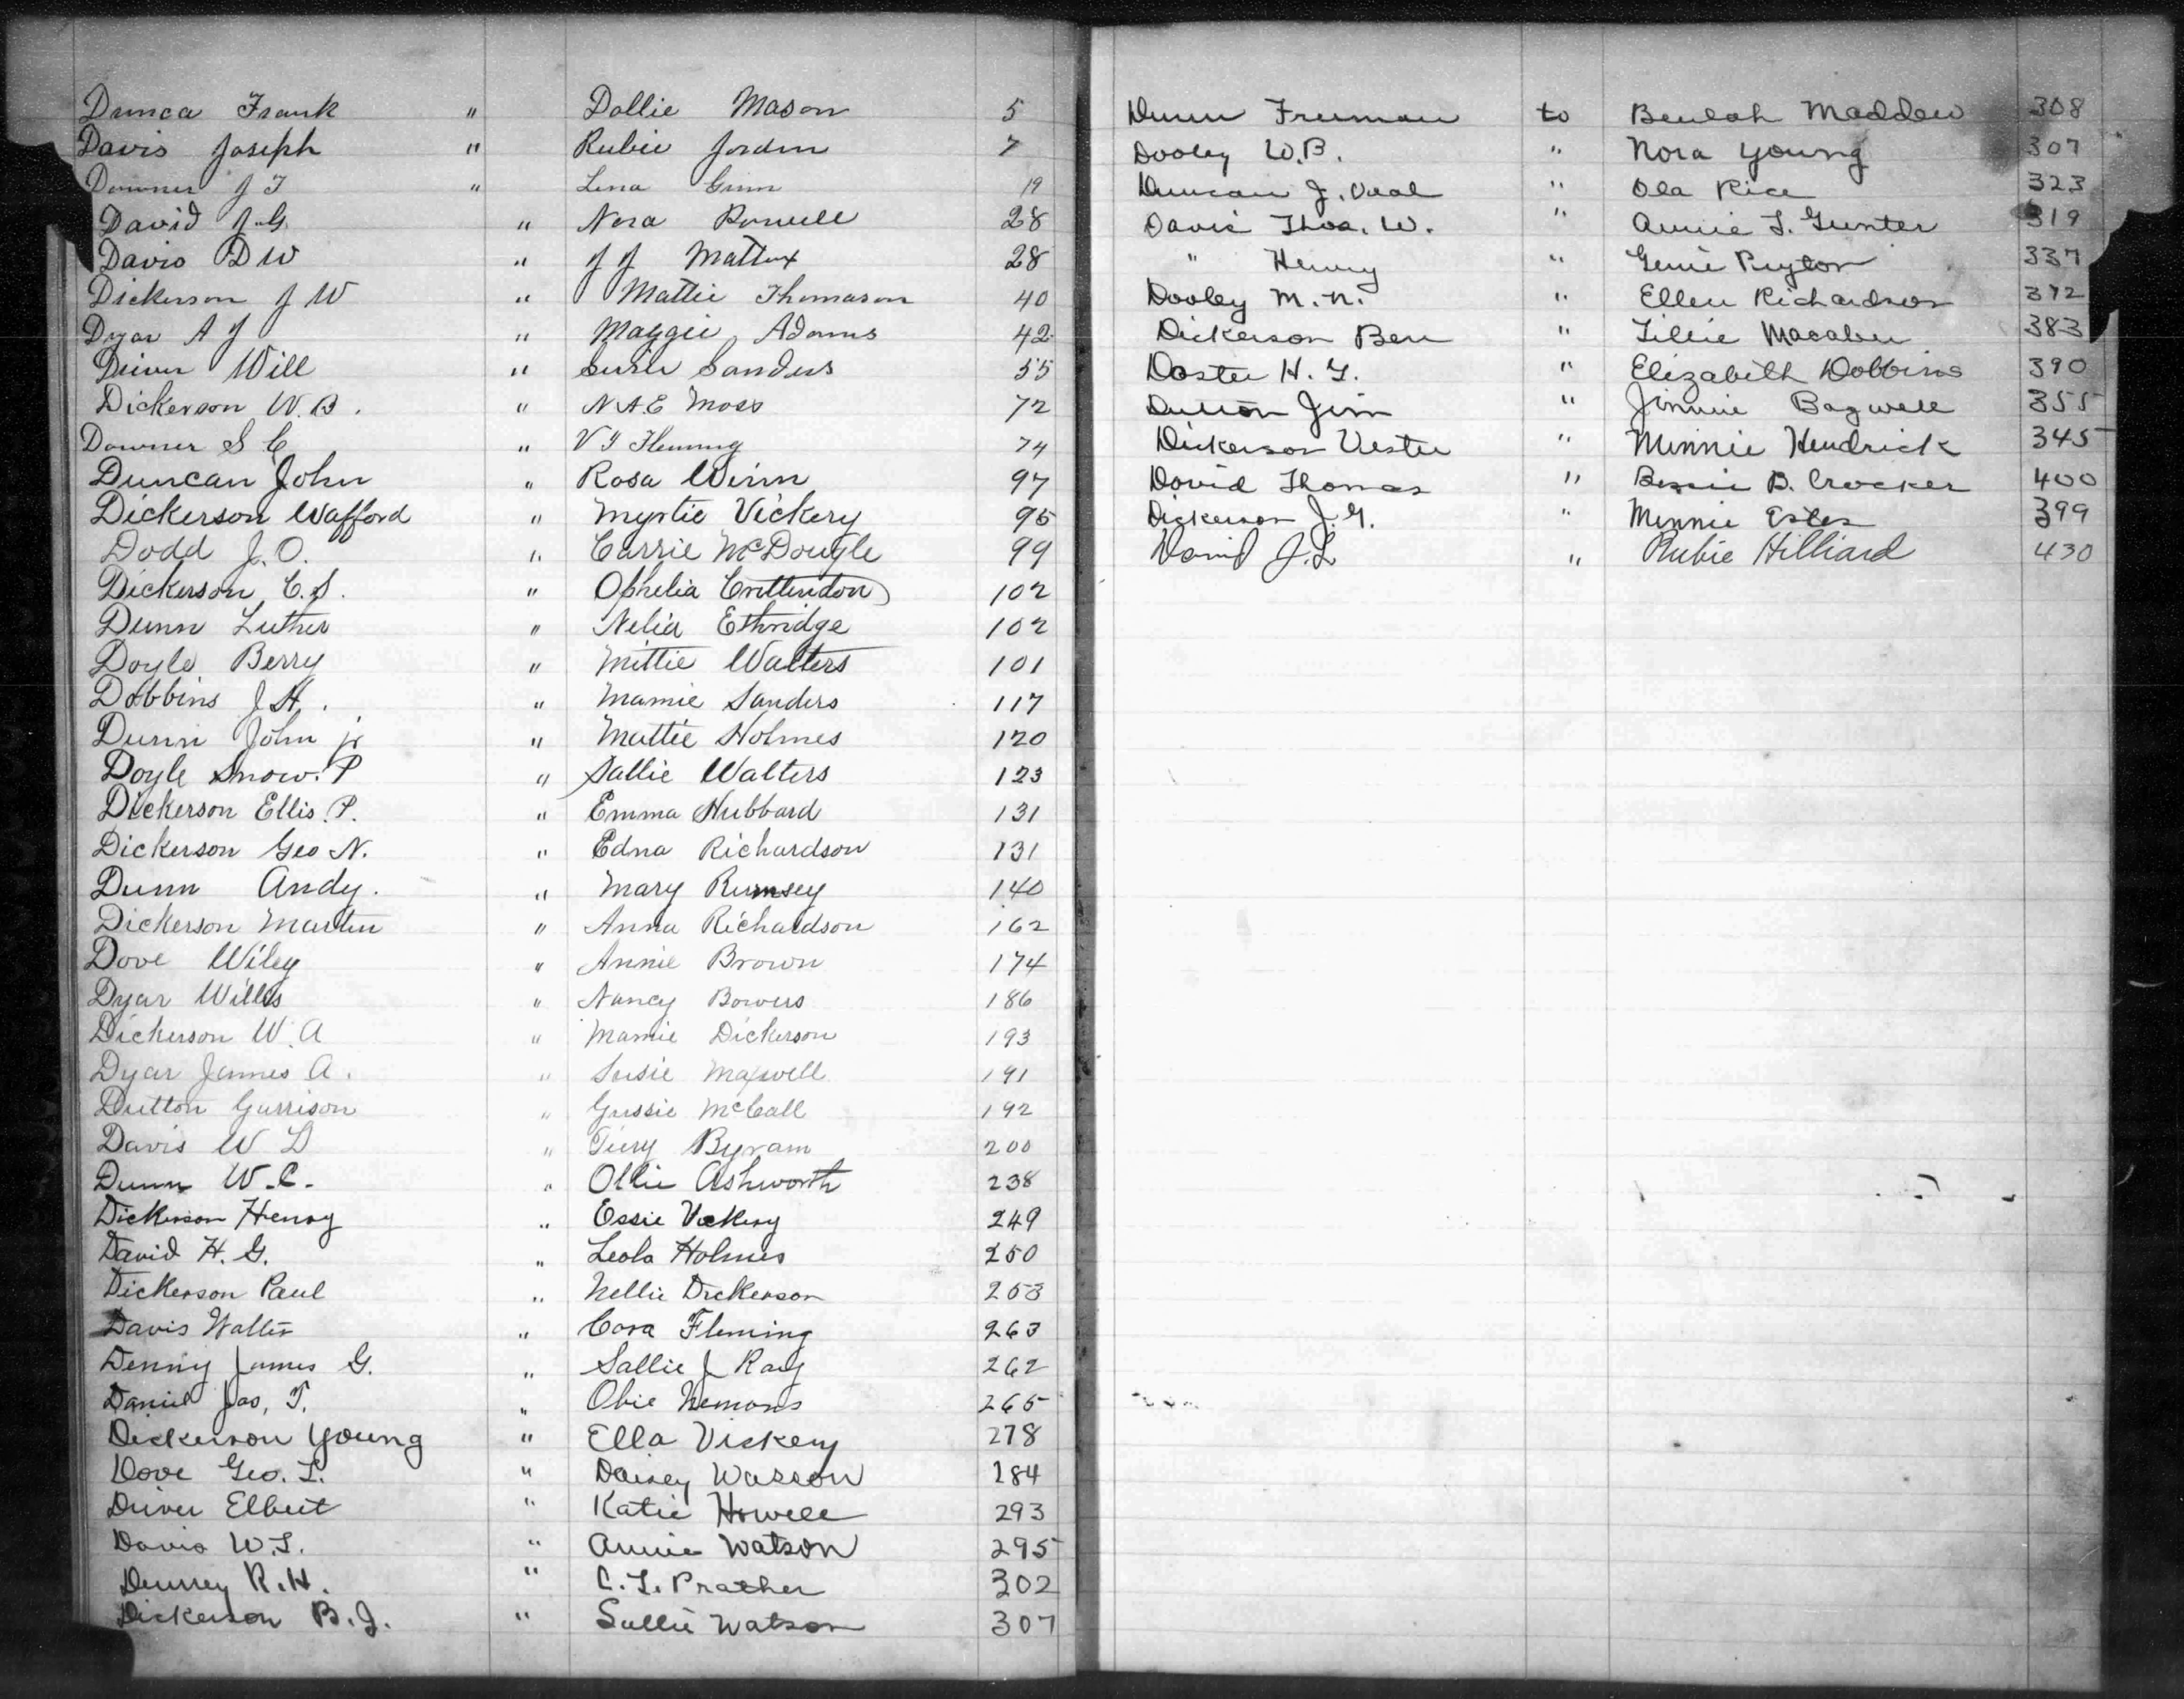 Dunca Frank " Dollie Mason 5
Davis Joseph " Rubie Jordin 7
Downer J T " Lena Ginn 19
David J.G. " Nora Powell 28
Davis D W " J J Mattox 28
Dickerson J W " Mattie Thomason 40
Dyar A J " Maggie Adams 42
Driver Will " Susie Sanders 55
Dickerson W.B. " N.A.E Moss 72
Downer S C " V T Fleming 74
Duncan John " Rosa Winn 97
Dickerson Wafford " Myrtie Vickery 95
Dodd J.O. " Carrie McDougle 99
Dickerson C.S. " Ophelia Crittendon 102
Dunn Luther " Nelia Ethridge 102
Doyle Berry " Mittie Walters 101
Dobbins J.H. " Mamie Sanders 117
Dunn John jr " Mattie Holmes 120
Doyle Snow. P " Sallie Walters 123
Dickerson Ellis. P. " Emma Hubbard 131
Dickerson Geo N. " Edna Richardson 131
Dunn Andy. " Mary Rumsey 140
Dickerson Martin " Anna Richardson 162
Dove Wiley " Annie Brown 174
Dyar Willis " Nancy Bowers 186
Dickerson W.A " Mamie Dickerson 193
Dyar James A. " Susie Maxwell 191
Dutton Garrison " Gussie McCall 192
Davis W D " Byram 200
Dunn W.C. " Ollie Ashworth 238
Dickerson Henry " Essie Vickery 249
David H. G. " Leola Holmes 250
Dickerson Paul " Nellie Dickerson 253
Davis Walter " Cora Fleming 263
Denny James G. " Sallie J Ray 262
Daniel Jas, T. " Obie Nemons 265
Dickerson Young " Ella Vickery 278
Dove Geo. L. " Daisey Wasson 284
Driver Elbert " Katie Howell 293
Davis W.T. " Annie Watson 295
R.H. " C.L. Prather 302
Dickerson B.J. " Sallie Watson 307
Dunn Freeman to Beulah Maddox 308
Dooley W.B. " Nora Young 307
Duncan J. Vaal " Ola Rice 323
Davis Thos. W. " Annie L. Gunter 319
" Henry " Genie Peyton 337
Dooley M.N. " Ellen Richardson 372
Dickerson Ben " Lillie 383
Doster H. G. " Elizabeth Dobbins 390
Dutton Jim " Jimmie Bagwell 355
Dickerson Vester " Minnie Hendrick 345
David Thomas " Bessie B. Crocker 400
Dickerson J.G. " Minnie Estes 399
David J.L " Rubie Hilliard 430